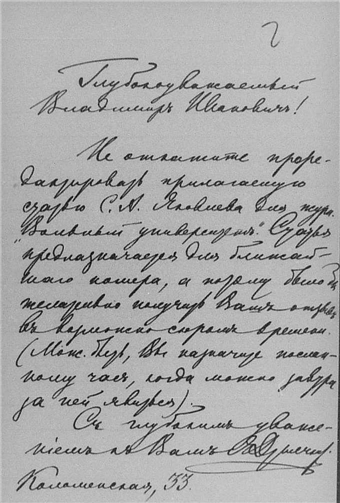 2
Глубокоуважаемый
Владимиръ Ивановичъ!
Не откажите проре-
дактировать прилагаемую
статью С. А. Яковлева для журн.
"Вольный университетъ". Статья
предназначается для ближай-
шаго номера, а потому было бы
желательно получить Вашъ отзывъ
въ возможно скоромъ времени.
(Мож. быть, Вы назначите послан-
ному часъ, когда можно завтра
за ней явиться).
Съ глубокимъ уваже-
ніемъ къ Вамъ
Коломенская, 33.